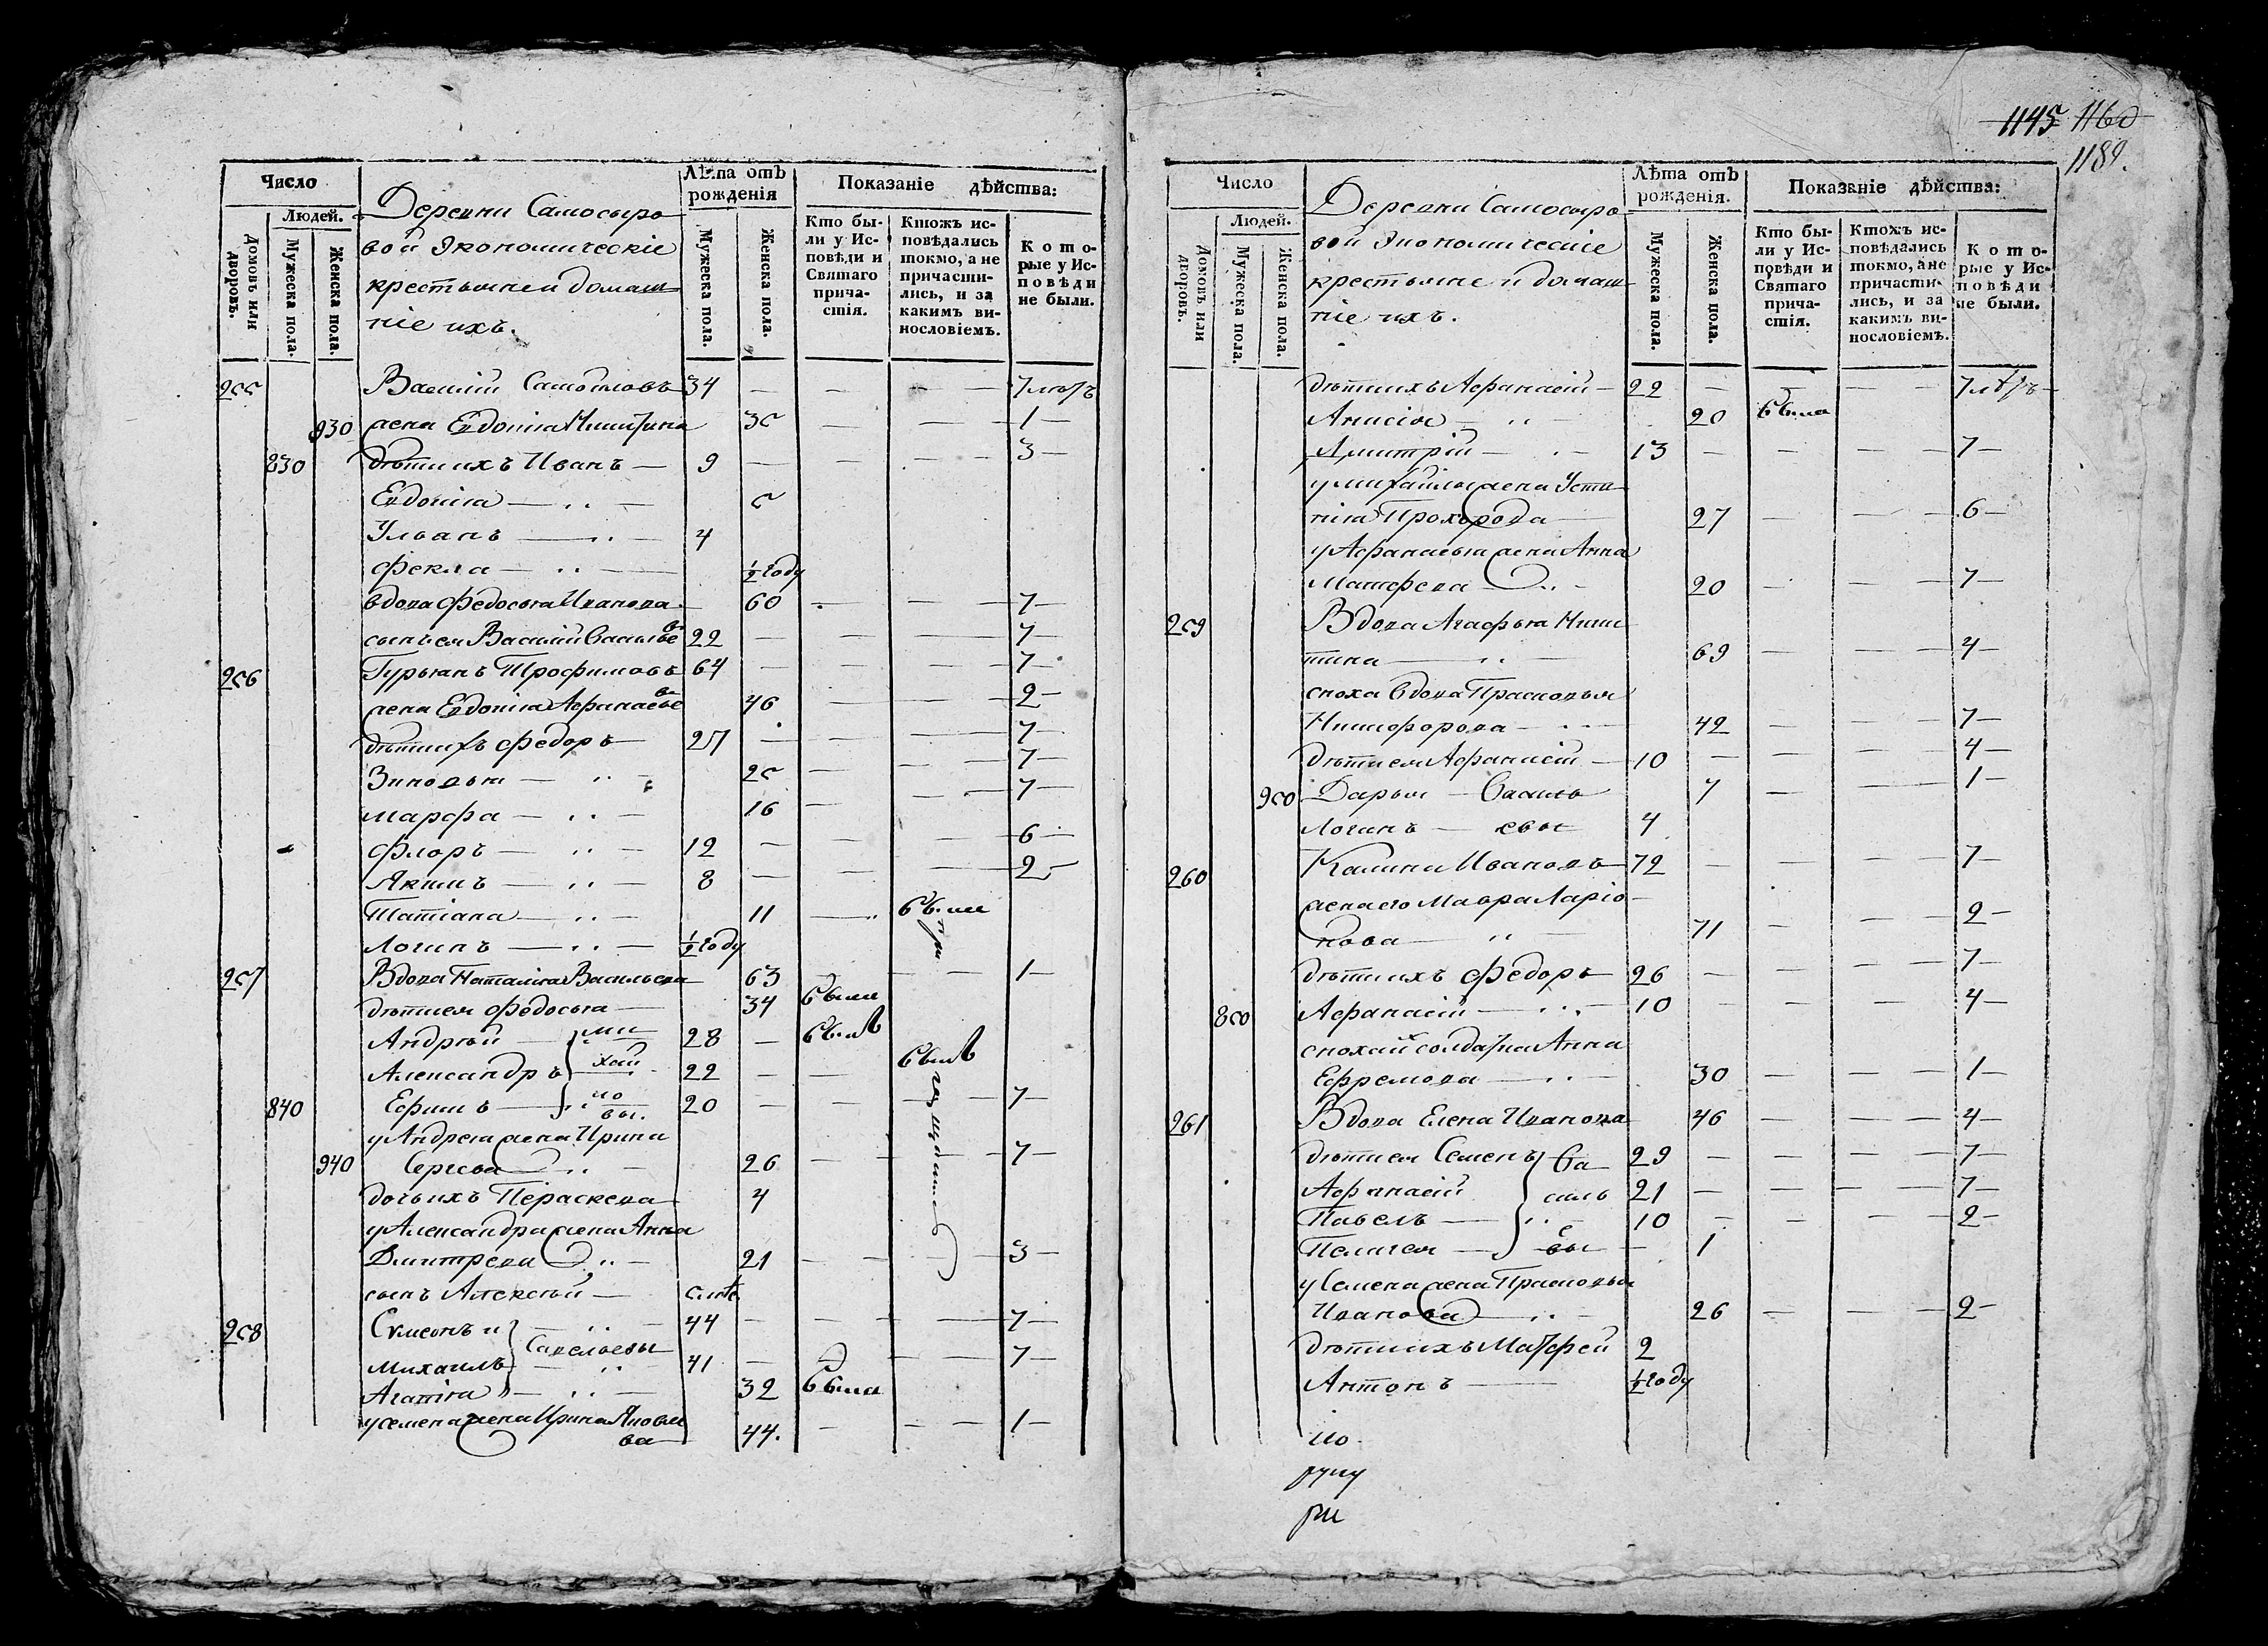 1145 1160
1189.
Число
Людей.
Домовъ или дворовъ.
Мужеска пола.
Женска пола.
Деревни Самосыро
вой Экономическіе
крестьяне и домаш
ніе ихъ.
Лѣта отъ рожденія
Мужеска пола.
Женска пола.
Показаніе дѣйства:
Кто бы-
ли у Ис-
повѣди и
Святаго
прича-
стія.
Ктожъ ис-
повѣдались
токмо, а не
причасти-
лись, и за
какимъ ви-
нословіемъ.
К о т о-
рые у Ис-
п о в ѣ д и
не были.
255 Василій Самойловъ 34 — — — — 7 лѣтъ
930 жена Евдокія Никитина 35 — — — 1 —
830 дѣти ихъ Иванъ — 9 — — — — 3 —
Евдокія — .. — 5
Ульянъ — .. — 4
Фекла — .. — ½ году
вдова Федосья Иванова 60 — — 7 —
сынъ ея Василій Василье въ 22 — — — 7 —
256 Гурьянъ Трофимовъ 64 — — — 7 —
жена Евдокія Афанасье ва 46 — — — 2 —
дѣти ихъ Федоръ — 27 — — — 7 —
Зиновья — .. — 25 — — 7 —
Марфа — .. — 16 — — 7 —
Флоръ — .. — 12 — — — 6 —
Якимъ — .. — 8 — — — 2 —
Татіана — .. — 11 — ..
Логинъ — .. — ½ году
257 Вдова Наталія Васильева 63 — — 1 —
дѣти ея Федосья — 34
Андрей — 28 —
Александръ 22 — —
840 Ефимъ — 20 — — — 7 —
Михайловы.
у Андрея жена Ирина
940 Сергеева .. — 26 — — — 7 —
дочь ихъ Пераскева 4
у Александра жена Анна
Дмитрева .. — 21 — — — 3 —
сынъ Алексѣй —
258 Симеонъ и — .. — 44 — — — 7 —
Савельевы
Михаилъ — .. 41 — — 7 —
Агапія — .. — 32 была
у Семена жена Ирина Яковле
ва 44. — — — 1 —
Число
Людей.
Домовъ или дворовъ.
Мужеска пола.
Женска пола.
Деревни Самосыро
вой Экономическіе
крестьяне и домаш
ніе ихъ.
Лѣта отъ рожденія.
Мужеска пола.
Женска пола.
Показаніе дѣйства:
Кто бы-
ли у Ис-
повѣди и
Святаго
прича-
стія.
Ктожъ ис-
повѣдались
токмо, а не
причасти-
лись, и за
какимъ ви-
нословіемъ.
К о т о-
рые у Ис-
п о в ѣ д и
не были.
дѣти ихъ Афанасій — 22 — — — — 7 лѣтъ —
Анисія — .. — 20 была
Дмитрій — .. — 13 — — — — 7 —
у Михайлы жена Усти
нія Прохорова 27 — — — 6 —
у Афанасья жена Анна
Матфева .. — 20 — — — 7 —
259 Вдова Агафья Ники
тина — .. — 69 — — — 4 —
сноха вдова Прасковья
Никифорова — .. — 42 — — — 7 —
дѣти ея Афанасій — 10 — — — — 4 —
950 Дарья — Василь 7 — — 1 —
Логинъ — евы 4
260 Калина Ивановъ 72 — — — — 7 —
жена его Мавра Ларіо
нова — .. — 71 — — — 2 —
дѣти ихъ Федоръ 26 — — — — 7 —
850 Афанасій — .. — 10 — — — — 4 —
сноха ихъ солдатка Анна
Ефремова — .. — 30 — — — 1 —
261 Вдова Елена Иванова 46 — — — 4 —
дѣти ея Семенъ 29 — — — — 7 —
Афанасій 21 — — — — 7 —
Павелъ — 10 — — — — 2 —
Пелагея — 1
Васильевы
у Семена жена Прасковья
Иванова .. — 26 — — — 2 —
дѣти ихъ Матфей 2
Антонъ — ½ году
по
руку
ри